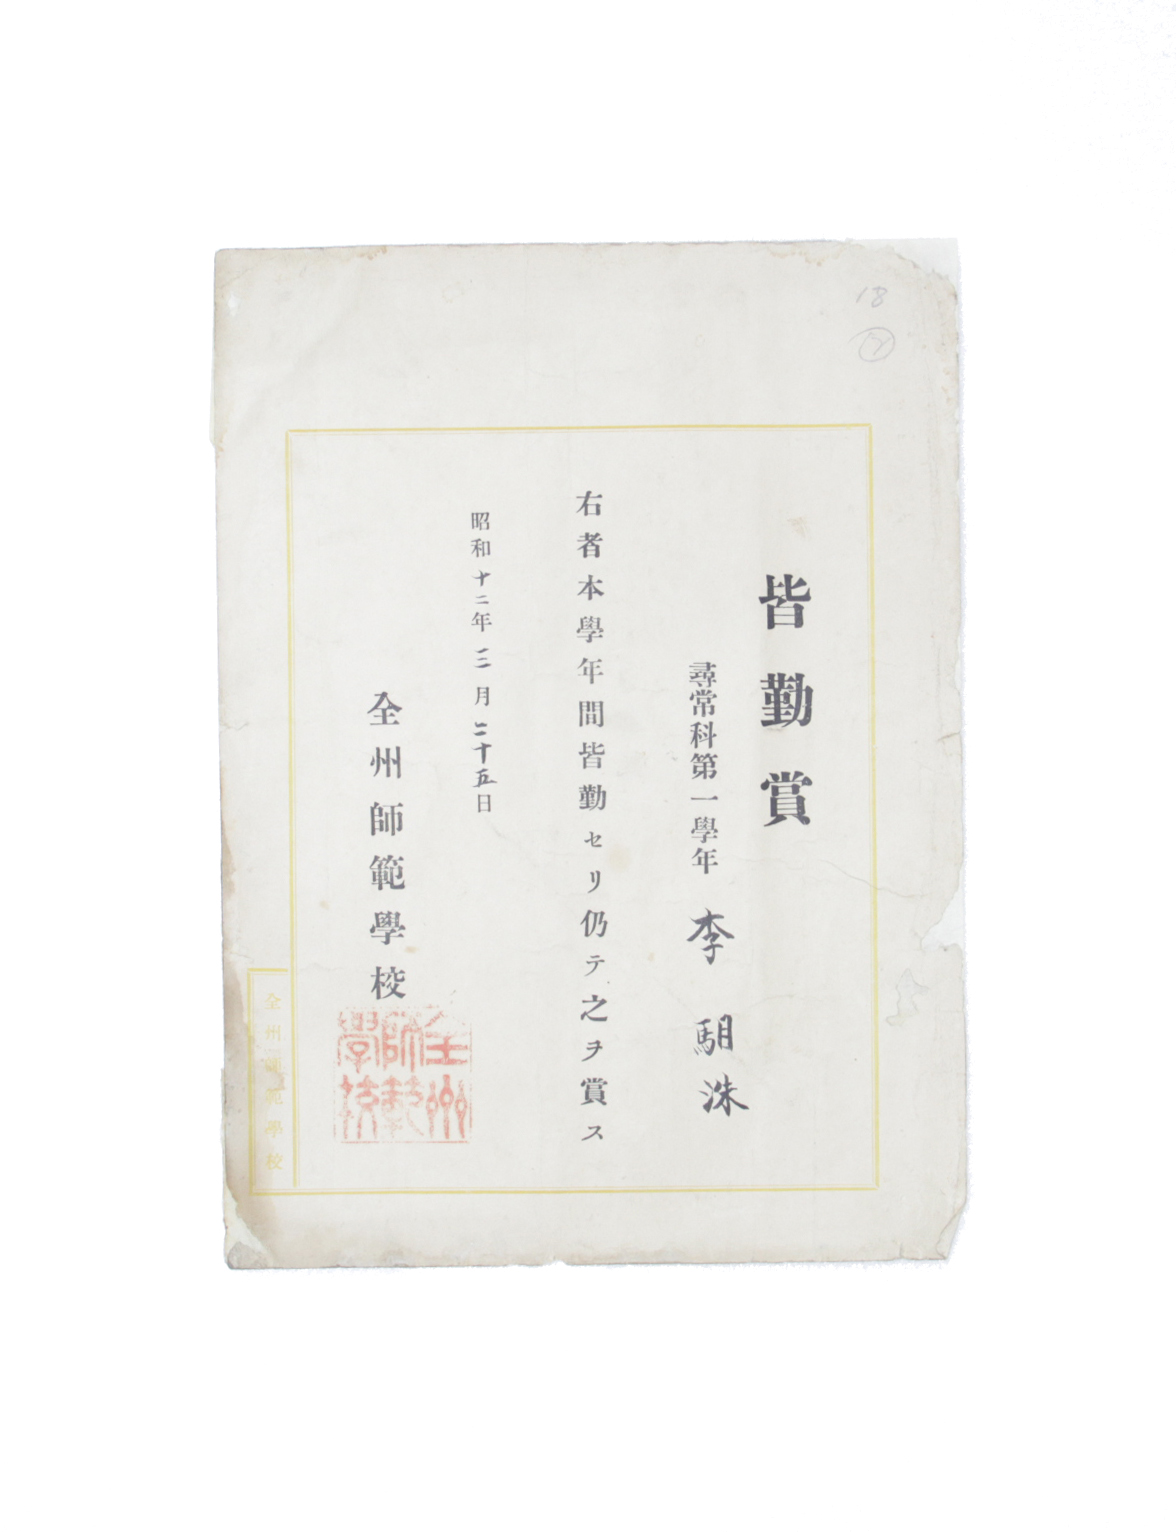 18
皆勤賞
尋常科第一學年 李 駬洙
右者本學年間皆勤セリ仍テ之ヲ賞ス
昭和十二年三月二十五日
全州師範學校
全州師範學校
全州師範學校